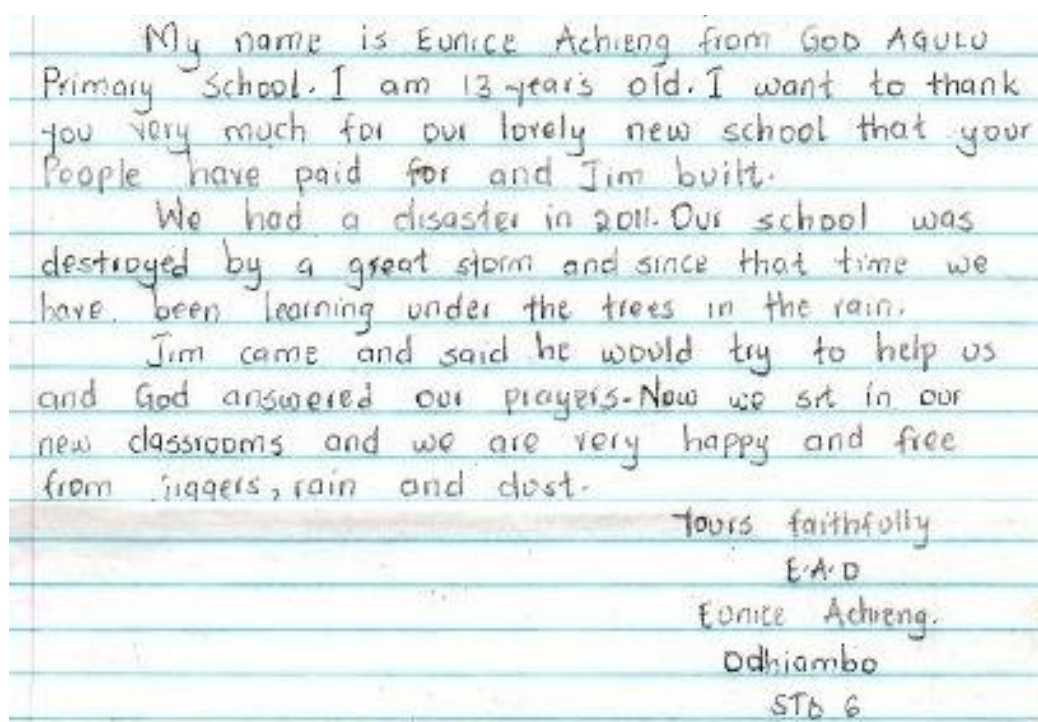 My name is Eunice Achieng from GOD AGULU
Primary School. I am 13 years old. I want to thank
you very much for our lovely new school that your
People have paid for and Jim built.
We had a disaster in 2011. Our school was
destroyed by a great storm and since that time we
have been learning under the trees in the rain.
Jim came and said he would try to help us
and God answered our prayers. Now we sit in our
new classrooms and we are very happy and free
from jiggers, rain and dust.
Yours faithfully
E.A.O
Eunice Achieng.
Odhiambo
STD 6